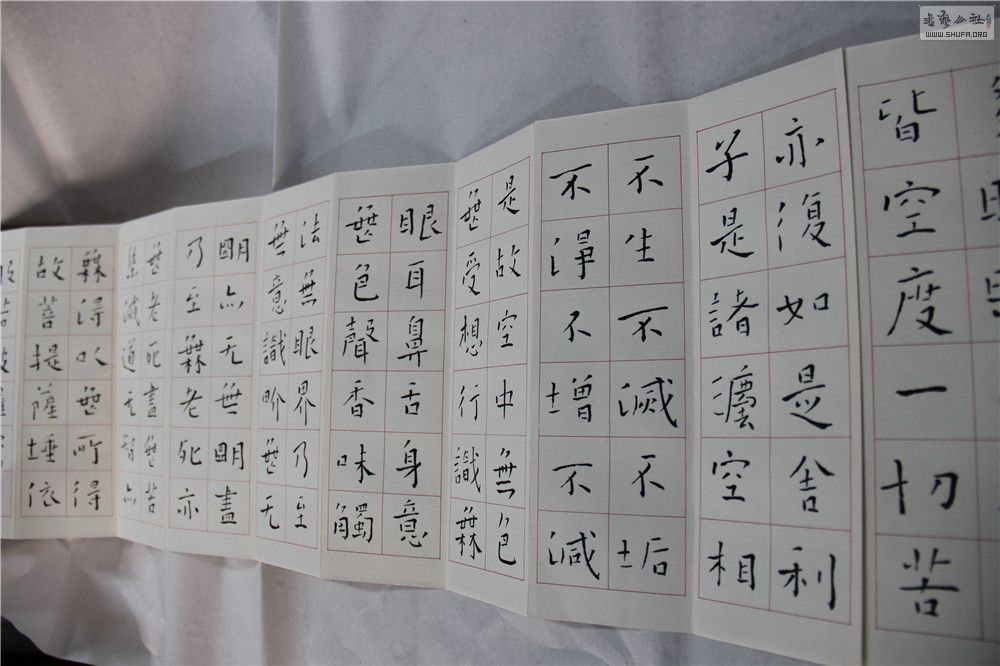 書藝公社
WWW.SHUFA.ORG
皆空度一切苦
亦復如是舍利
子是諸灋空相
不生不滅不垢
不淨不增不減
是故空中無色
無受想行識無
眼耳鼻舌身意
無色聲香味觸
法無眼界乃至
無意識畍無无
明亦无無明盡
乃至無老死亦
無老死盡無苦
集滅道無智亦
無得以無所得
故菩提薩埵依